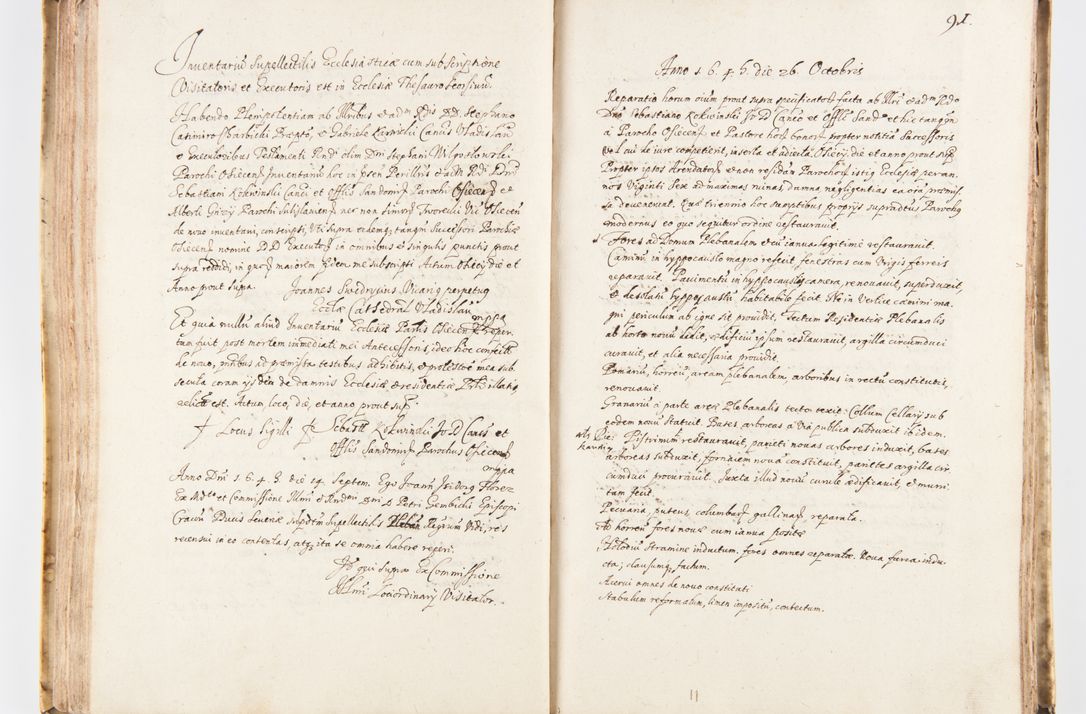 Inventariũ Supellectilis Ecclesiasticæ cum subscriptione
Visitatoris et Executoris est in Ecclesiæ Thesauro seorsivũ.
Habendo Plenipotentiam ab Illribus et adm Rdis DD. Stephano
Casimiro Charbicki Præpto, et Gabriele Cancis Vladislaũ
e Executoribus Testamenti Rndi olim Dni Stephani
Parochi Osiecen Inventariũ hoc in psen Perillris et adm Rdi Dni
Sebastiani Kokwinski Canci et Offlis Sandomir Parochi Osiecen et
Alberti Parochi nec non Vic Osiecen
de novo inventani, conscripti, Uti supra eidemq tangm Successori Parochiæ
Osiecen nomine DD Executor in omnibus et singulis punctis prout
supra reddidi, in quor maiorem fidem me subscripsi Actum Osiecy die et
Anno prout supra. Joannes Vicarig perpetug
Eccliæ Cathedral Vladislau
mppa
Et quia nullũ aliud Inventariũ Ecclesiæ Parlis Osiecen reper
tum fuit post mortem immediati mei Antecessoris, ideo hoc confeci
de novo, ad præmissa testibus adhibitis, et protestor mea sub
secula coram ijsdem de damnis Ecclesiæ et residentiæ
relicta est. Actum loco, die, et anno prout sup.
† Locus Sigilli † Sebast Kokwinski JVD Cancs et
Offlis Sandomir Parochus Osiecen
mppa
Anno Dni 1.6.4.5. die 14 Septem. Ego Joann Isidorg
Ex Mdto et Commissione Illmi et Rndmi Dni D Petri Gembicki Episcopi
Cracov Ducis Severiæ supdtm Supellectilis Regestrum Vidi, res
recensui in eo contentas, atq ita se omnia habere reperi.
Id qui supra Ex Commissione
Illmi Lociordinarij Visitator.
91.
Anno 1.6.4.5. die 26. Octobris
Reparatio horum oium prout supra specificator facta ab Illri et adm Rdo
Dno Sebastiano Kokwinski JVD Canco et Offli Sand et hic tangm
a Parocho Osiecen et Pastore hor bonor propter notitiã Successoris
vel cui de iure competierit, inserta et adiecta Osiecy, die et anno prout sup.
Propter ipsos Arendator et non residen Parochor istig Ecclesiæ per an
nos Viginti Sex ad maximas ruinas, damna, negligentias ea oia præmis
sa devenerat. Quæ triennio hoc sumptibus proprijs supradtus Parochg
modernus eo quo sequitur ordine restauravit.
Fores ad Domum Plebanalem et eiũ ianua legitime restauravit.
Caminũ in hyppocausto magno refecit, fenestras cum Virgis ferreis
reparavit. Pavimentũ in hyppocaustis, camera, renovavit, superduxit,
et desilati hyppocaustũ habitabile fecit. Ne in Vertice camini ma
gni periculum ab igne sit providit. Tectum Residentiæ Plebanalis
ab horto novũ dedit, ædificiũ ipsum restauravit, argilla circumduci
curavit, et alia necessaria providit.
Pomariũ, horreũ, aream plebanalem, arboribus in rectũ constitutis,
renovavit.
Granariũ a parte areæ Plebanalis tecto texit. Collum Cellarij sub
eodem novũ statuit. Bases arboreas a Via publica subduxit ibidem.
Pistrinum restauravit, parieti novas arbores induxit, bases
arboreas subduxit, fornacem novã constituit, parietes argilla cir
cumduci procuravit. Juxta illud novũ cunile ædificavit, et muni
tum fecit.
Pecuaria, puteus, columbar, gallinar, reparata.
Ad horreũ fores novæ cum ianua positæ
Stramine inductum, fores omnes reparatæ. Nova furca indu
cta; clausumq factum.
Acervi omnes de novo constituti
Stabulum reformatum, limen impositũ, contectum.